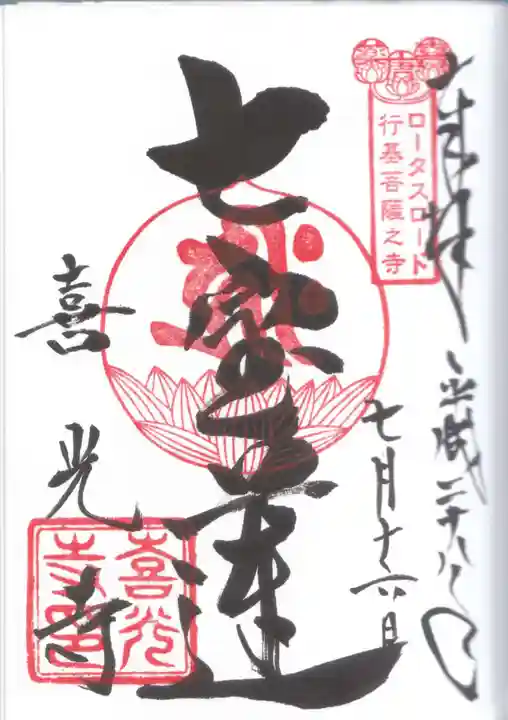 奉拝
平成二十八年
七月十六日
ロータスロード
行基菩薩之寺
七宝蓮
喜光寺